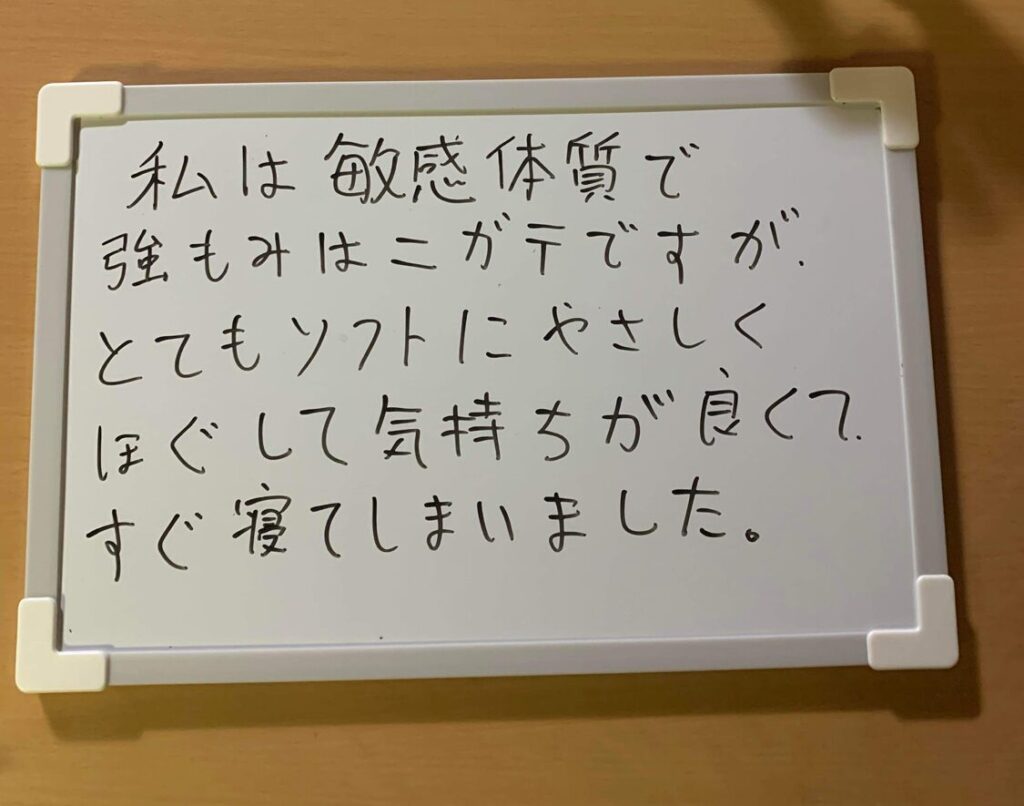 私は敏感体質で
強もみはニガテですが、
とてもソフトにやさしく
ほぐして気持ちが良くて、
すぐ寝てしまいました。